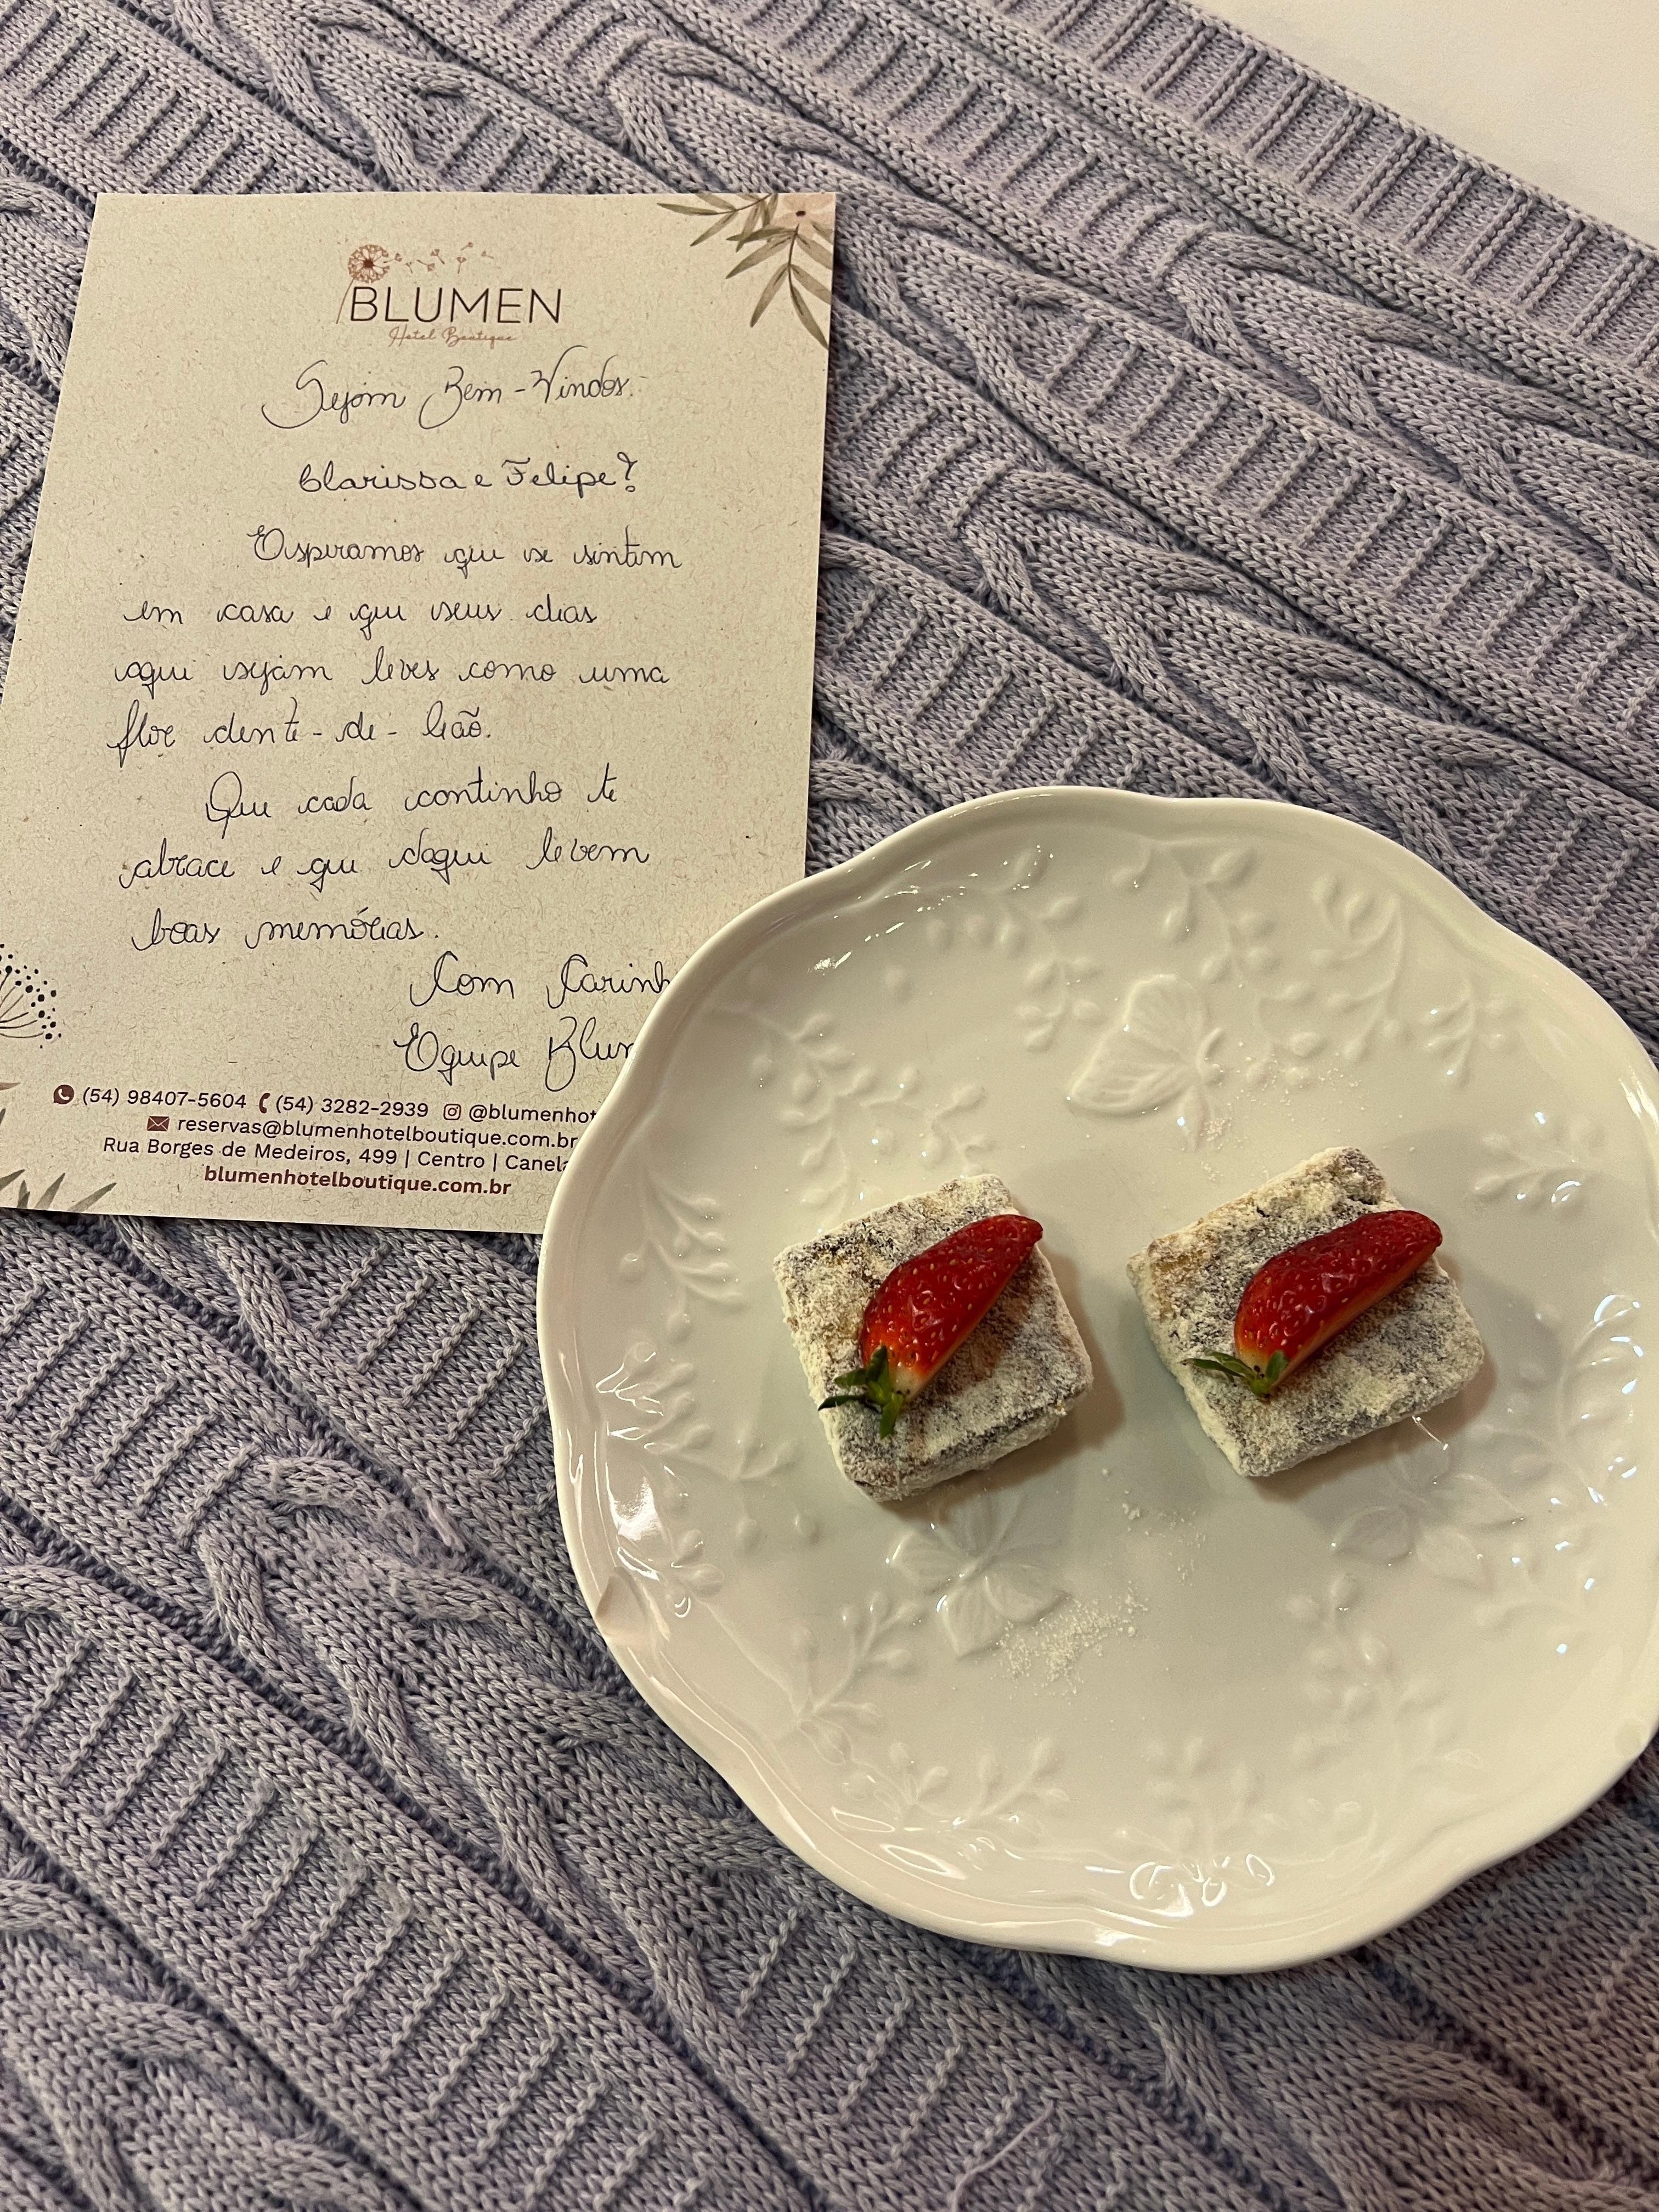 BLUMEN
Hotel Boutique
Sejam Bem-Vindos.
Clarissa e Felipe!
Esperamos que se sintam
em casa e que seus dias
aqui sejam leves como uma
flor dente-de-leão.
Que cada cantinho te
abrace e que daqui levem
boas memórias.
Com Carinh
Equipe Blum
(54) 98407-5604 (54) 3282-2939 @blumenhot
reservas@blumenhotelboutique.com.br
Rua Borges de Medeiros, 499 | Centro | Canela
blumenhotelboutique.com.br